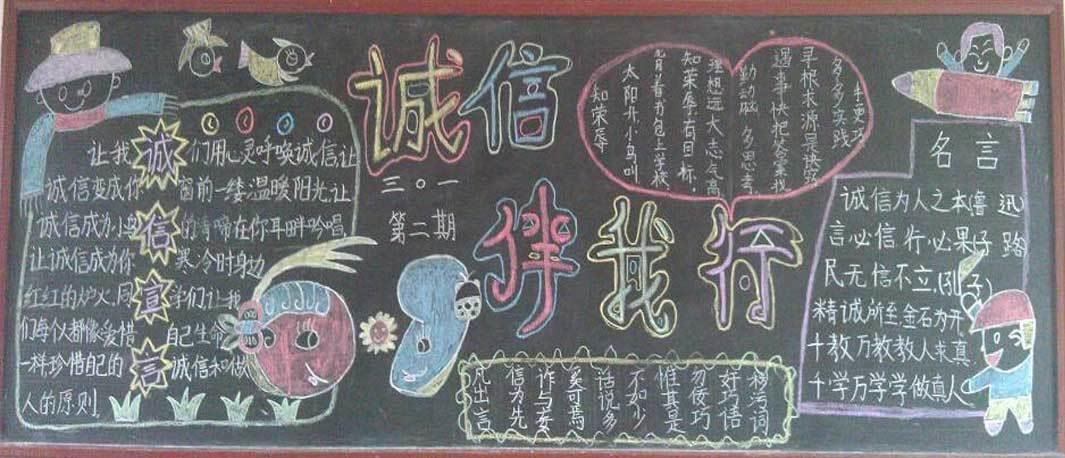 诚信
伴我行
三〇一
第二期
诚信宣言
让我们用心灵呼唤诚信,让
诚信变成你窗前一缕温暖阳光,让
诚信成为小鸟的清啼在你耳畔吟唱
让诚信成为你寒冷时身边
红红的炉火,同学们,让我
们每个人都像爱惜自己生命
一样珍惜自己的诚信和做
人的原则.
知荣辱
太阳升小鸟叫
背着书包上学校
知荣辱有目标,
理想远大志气高
勤动脑 多思考
遇事快把答案找
寻根求源是诀窍
多多实践
手更巧
凡出言
信为先
诈与妄
奚可焉
话说多
不如少
惟其是
勿佞巧
好巧语
秽污词
名言
诚信为人之本(鲁迅)
言必信 行必果(子路)
民无信不立.(孔子)
精诚所至金石为开
千教万教教人求真
千学万学学做真人